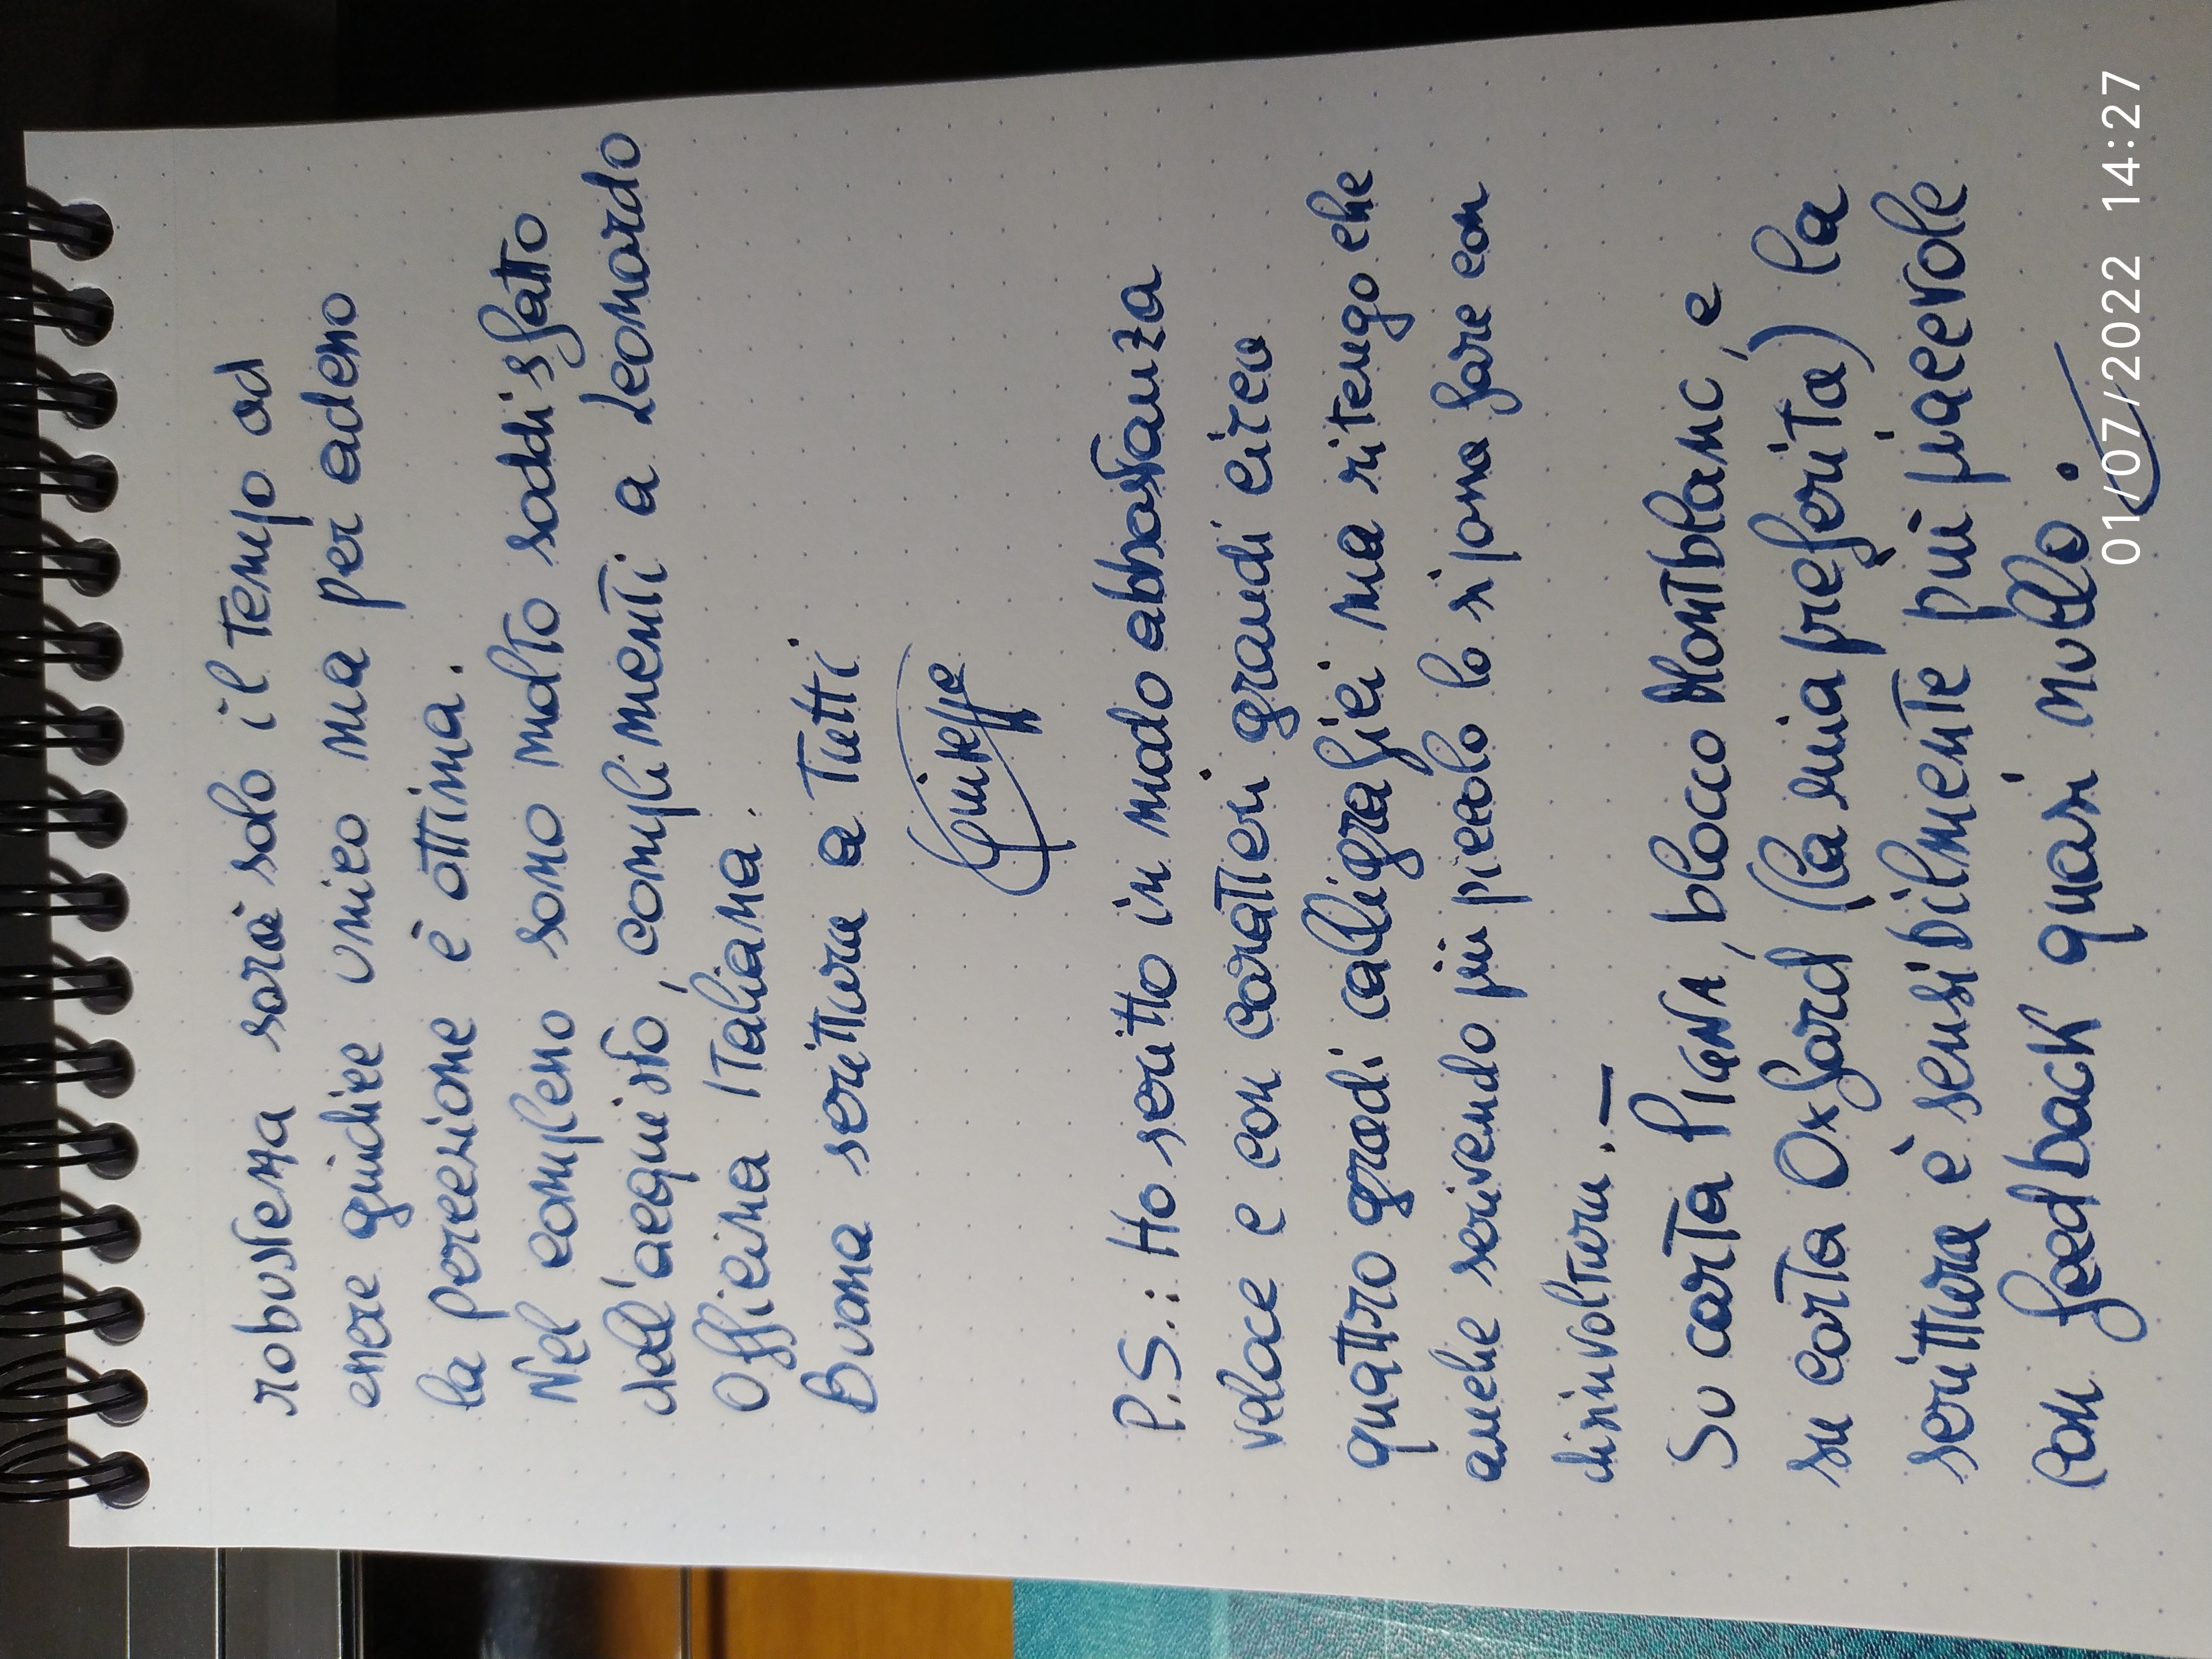 robustezza sarà solo il tempo ad
essere giudice unico ma per adesso
la percezione è ottima.
Nel complesso sono molto soddisfatto
dell'acquisto, complimenti a Leonardo
Officina Italiana.
Buona scrittura a Tutti
Giuseppe
P.S.: Ho scritto in modo abbastanza
veloce e con caratteri grandi circa
quattro gradi calligrafici ma ritengo che
anche scrivendo più piccolo lo si possa fare con
disinvoltura. -
Su carta PIGNA, blocco Montblanc, e
su carta Oxford (la mia preferita) la
scrittura è sensibilmente più piacevole
con feedback quasi nullo.
01/07/2022 14:27